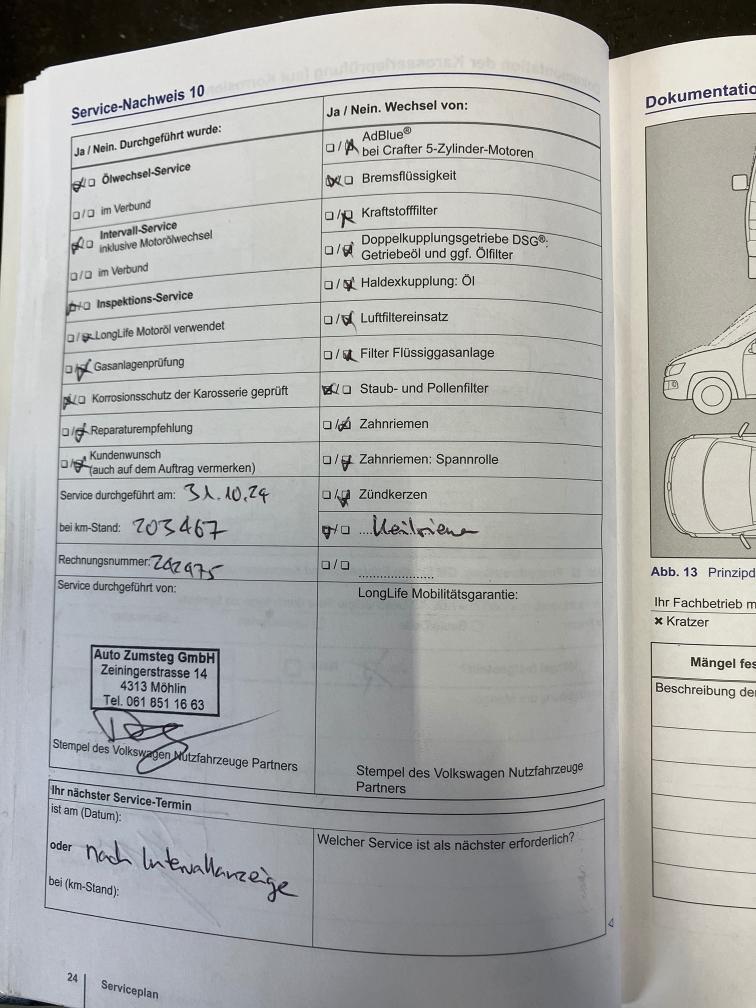 Service-Nachweis 10
Ja / Nein. Durchgeführt wurde:
Ölwechsel-Service
im Verbund
Intervall-Service
inklusive Motorölwechsel
im Verbund
Inspektions-Service
LongLife Motoröl verwendet
Gasanlagenprüfung
Korrosionsschutz der Karosserie geprüft
Reparaturempfehlung
Kundenwunsch
(auch auf dem Auftrag vermerken)
Service durchgeführt am: 31.10.24
bei km-Stand: 203467
Rechnungsnummer: 242975
Service durchgeführt von:
Auto Zumsteg GmbH
Zeiningerstrasse 14
4313 Möhlin
Tel. 061 851 16 63
Stempel des Volkswagen Nutzfahrzeuge Partners
Ja / Nein. Wechsel von:
AdBlue®
bei Crafter 5-Zylinder-Motoren
Bremsflüssigkeit
Kraftstofffilter
Doppelkupplungsgetriebe DSG®:
Getriebeöl und ggf. Ölfilter
Haldexkupplung: Öl
Luftfiltereinsatz
Filter Flüssiggasanlage
Staub- und Pollenfilter
Zahnriemen
Zahnriemen: Spannrolle
Zündkerzen
Keilriemen
LongLife Mobilitätsgarantie:
Stempel des Volkswagen Nutzfahrzeuge
Partners
Ihr nächster Service-Termin
ist am (Datum):
oder nach Intervallanzeige
bei (km-Stand):
Welcher Service ist als nächster erforderlich?
24 Serviceplan
Dokumentatio
Abb. 13 Prinzipd
Ihr Fachbetrieb m
✖ Kratzer
Mängel fes
Beschreibung de